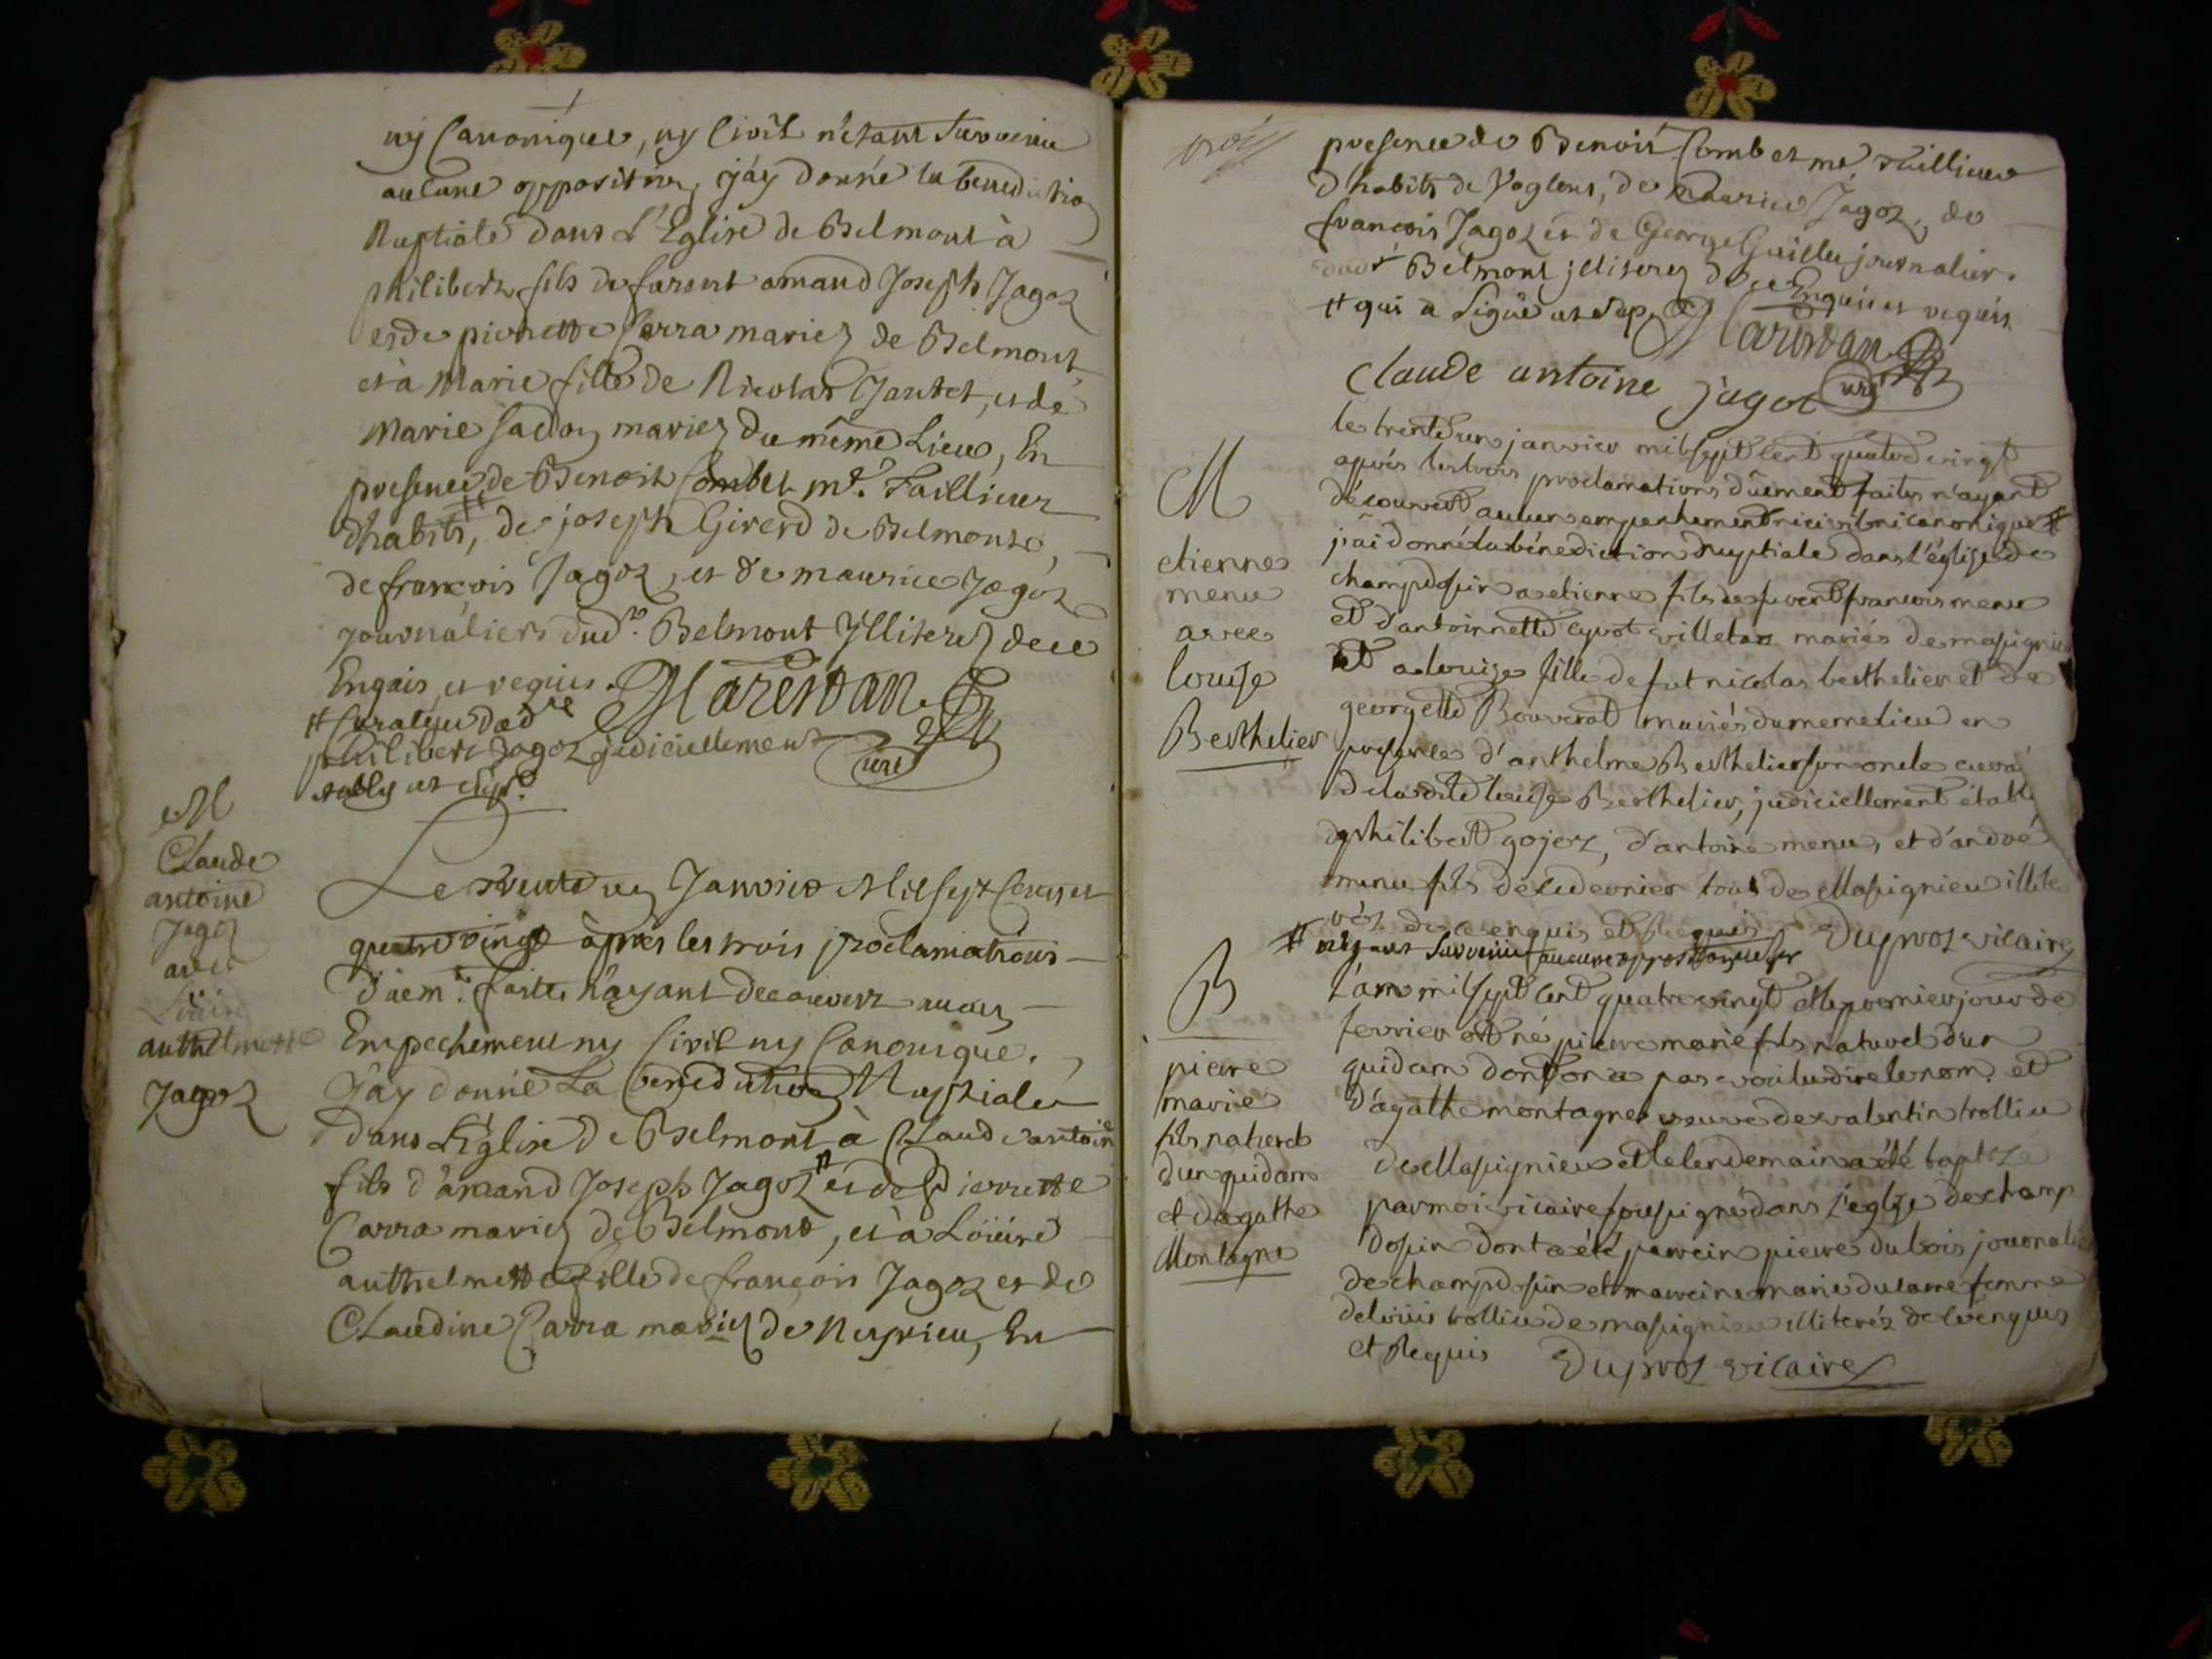 ny Canonique, ny Civil n'etant Survenu
aucune opposition, j'ay donné la benediction
Nuptiale dans L'Eglise de Belmont à
philibert fils de furent amand Joseph Jagoz
et de pierrette Carra mariez de Belmont,
et à Marie fille de Nicolas Jantet, et de
Marie mariez du même Lieu, En
presence de Benoit Combet me. Taillieur
d'habits, # de joseph Girerd de Belmont,
de francois Jagoz, et de maurice Jagoz
journaliers dud't. Belmont Illiterez de ce
Enquis et requis. Marestan
# Curateur dud
philibert Jagoz judiciellement
etably curé
M
Claude
antoine
Jagoz
avec
Loüise
anthelmette
Jagoz
Le Trente un Janvier Mil sept Cents et
quatre vingt après les trois proclamations
düem't. faites n'ayant decouvert aucun
Empechement ny Civil ny Canonique.
J'ay donné La benediction Nuptiale
dans L'Eglise de Belmont à Claude antoine
fils d'amand Joseph Jagoz # et de Pierrette
Carra mariez de Belmont, et à Loüise
anthelmette fille de françois Jagoz et de
Claudine Carra mariez de Neyrieu, En
trois
presence de Benoit Combet me Taillieur
d'habits de Voglens, de maurice Jagoz, de
francois Jagoz et de George Guillu journalier
dud't Belmont jlliterez de ce Enquis et requis
# qui a Signé Marestan
Claude antoine jagoz curé
M
etienne
menu
avec
louise
Berthelier
le trente un janvier mil sept cent quatre vingt
après les trois proclamations düement faites n'ayant
découvert aucun empechement ni civil ni canonique #
j'ai donné la bénédiction nuptiale dans l'église de
champdosin a etienne fils de furent francois menu
et d'antoinnette mariés de masignieu
et a louise fille de fut nicolas berthelier et de
georgette Bouverat mariés du meme lieu en
presence d'anthelme Berthelier son oncle
de la dite louise Berthelier, judiciellement établi
de philibert gojerz, d'antoine menu, et d'andré
menu fils de ce dernier tous de Masignieu illite
réz de ce enquis et requis Duproz vicaire
# n'ayant Survenu aucune opposition
B
pierre
marie
fils naturel
d'un quidam
et d'agatte
Montagne
L'an mil sept cent quatre vingt et le premier jour de
fevrier est né pierre marie fils naturel d'un
quidam dont on a pas voulu dire le nom, et
d'agathe montagne veuve de valentin trollieu
de Masignieu et le lendemain a été baptizé
par moi vicaire soussigné dans l'eglise de champ
dosin dont a été parrein pierre dubois journalier
de champdosin et marreine marie femme
de loüis trollieu de masignieu illiteréz de ce enquis
et Requis Duproz vicaire